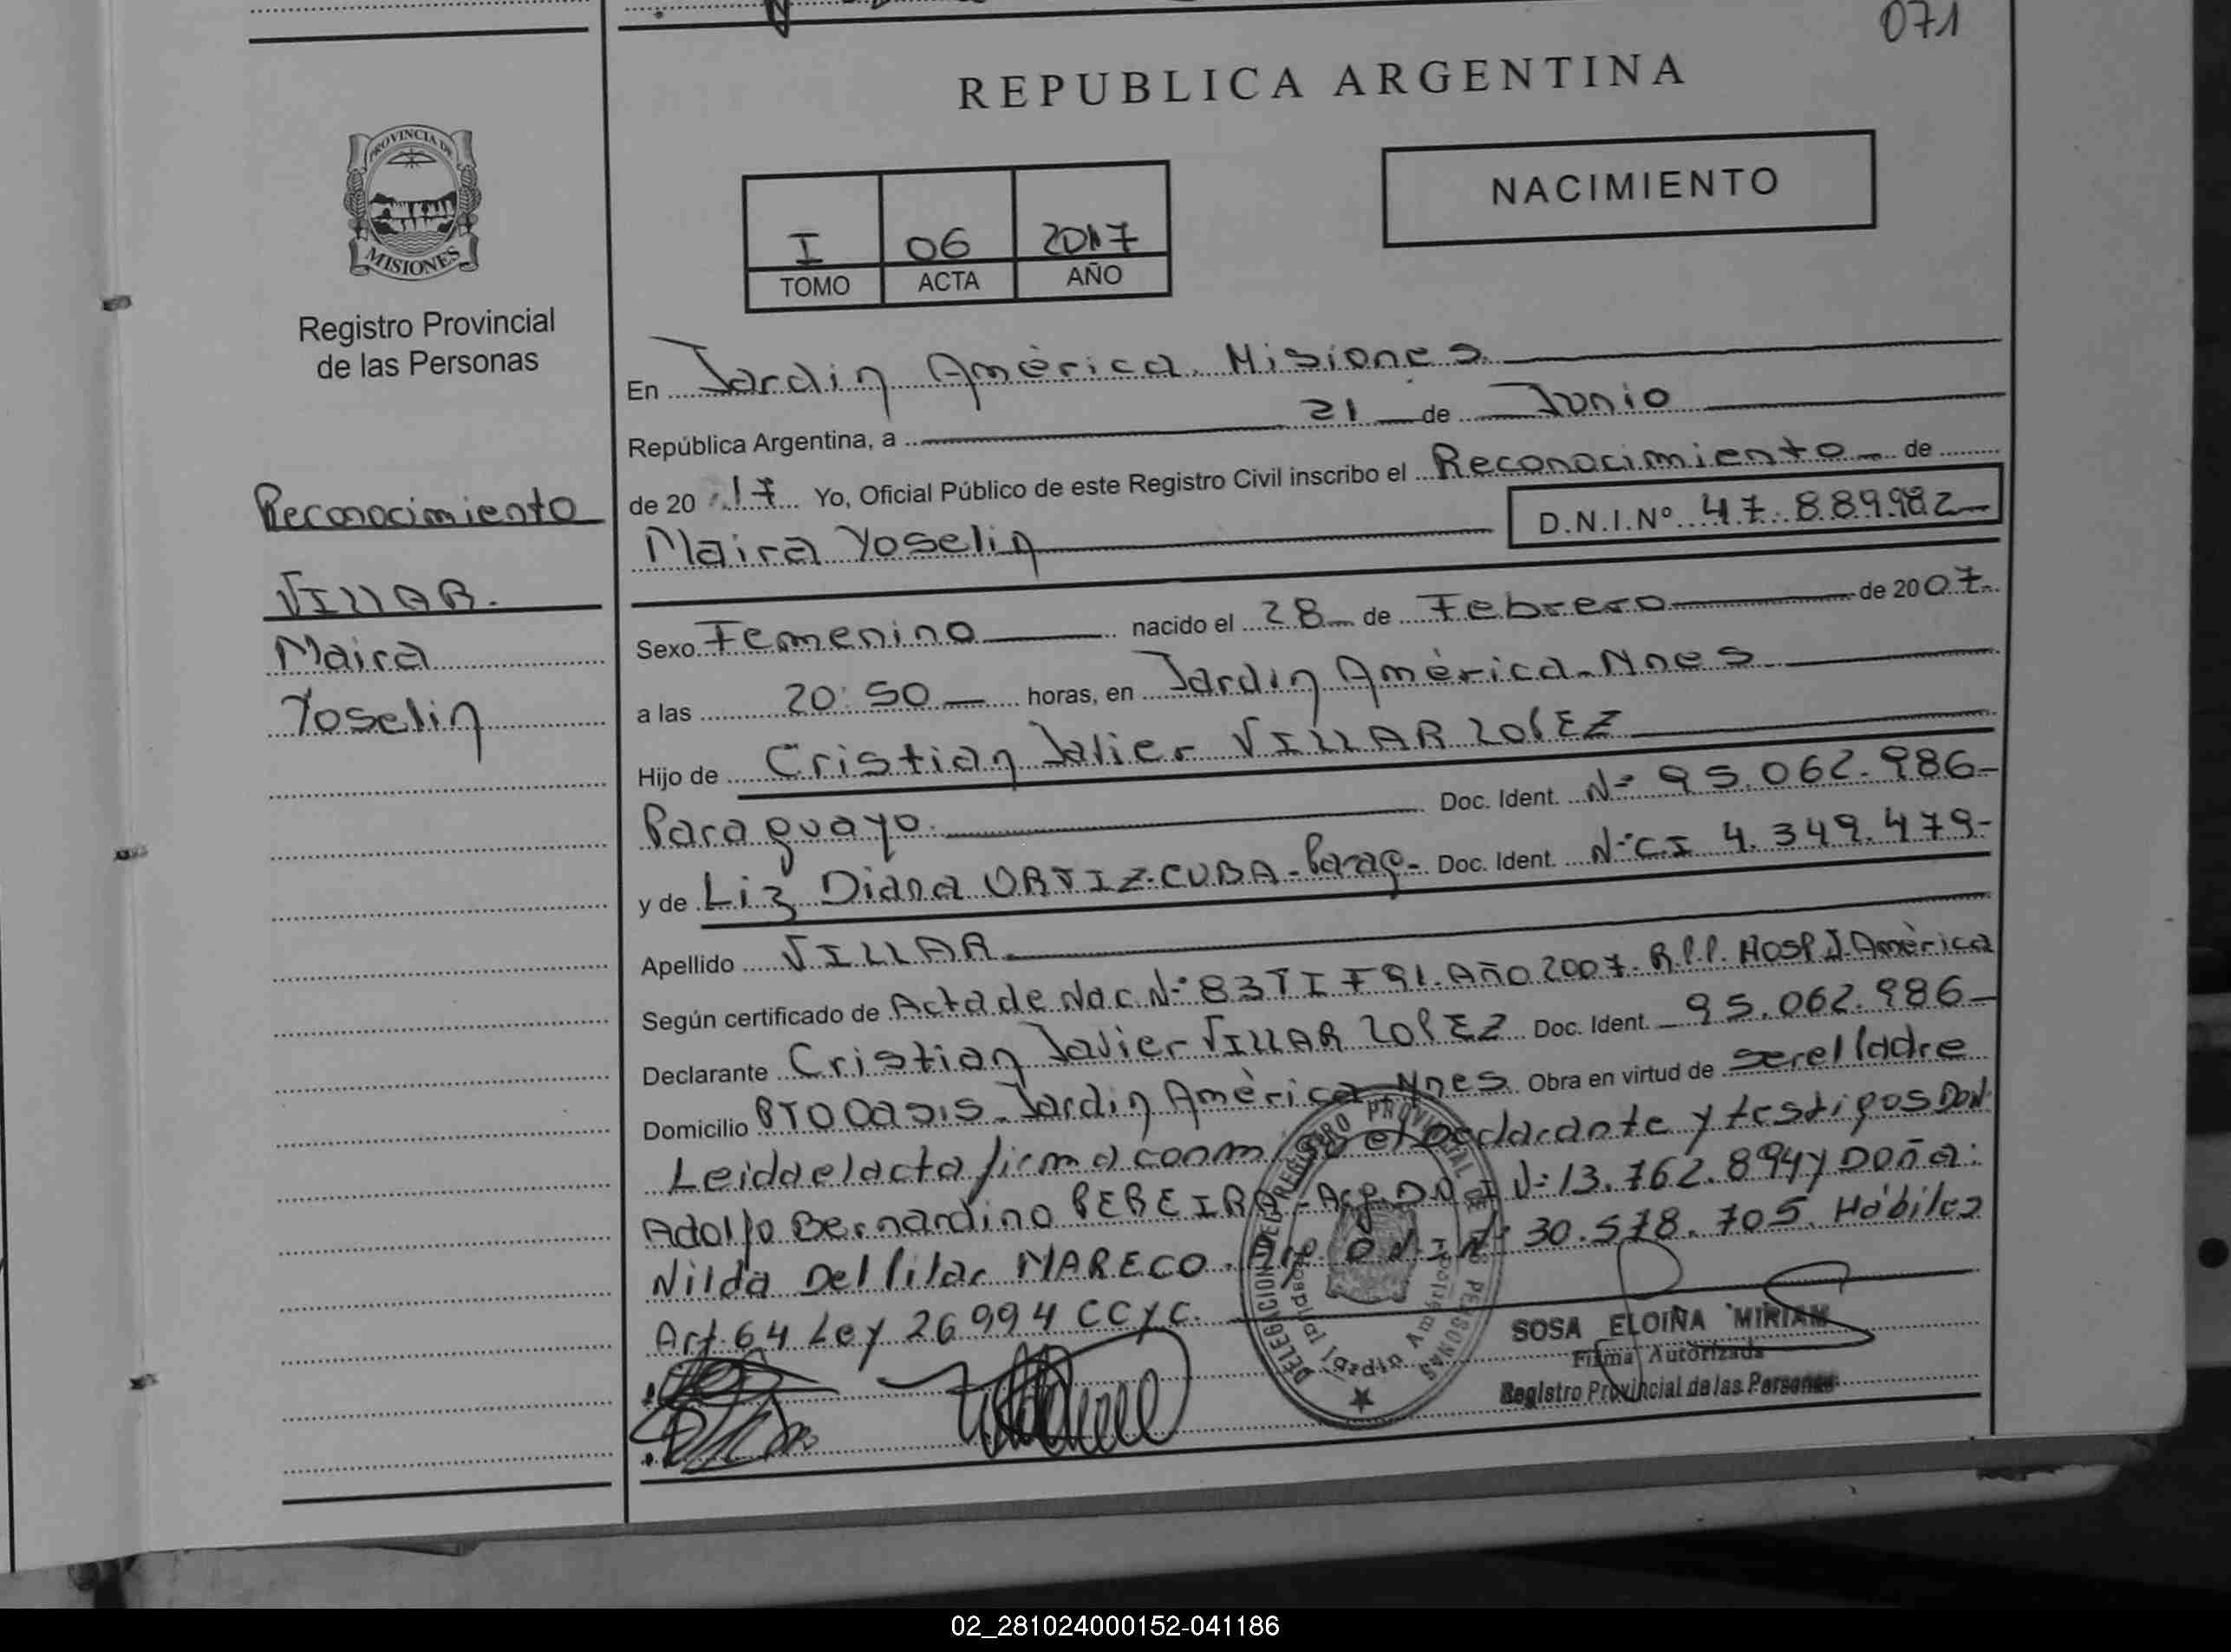 071
REPUBLICA ARGENTINA
PROVINCIA DE
MISIONES
Registro Provincial
de las Personas
NACIMIENTO
I 06 2017
TOMO ACTA AÑO
Reconocimiento
VILLAR.
Maira
Yoselin
En Jardin América. Misiones
República Argentina, a 21 de Junio
de 20 17 Yo, Oficial Público de este Registro Civil inscribo el Reconocimiento de
Maira Yoselin D.N.I.Nº 47.889982
Sexo Femenino nacido el 28 de Febrero de 2007
a las 20:50 horas, en Jardin América-Mnes
Hijo de Cristian Javier VILLAR LOPEZ
Paraguayo. Doc. Ident. Nº 95.062.986
y de Liz Diana ORTIZ CUBA-Parag- Doc. Ident. Nº C.I 4.349.479-
Apellido VILLAR
Según certificado de Acta de Nac Nº 83 T I F 91. Año 2007. R.P.P. Hosp J. América
Declarante Cristian Javier VILLAR LOPEZ Doc. Ident. 95.062.986
Domicilio BTO Oasis-Jardin América-Mnes Obra en virtud de ser el Padre
Leida el acta firma conmigo el Declarante y testigos DON
Adolfo Bernardino PEREIRA-Arg. D.N.I Nº 13.762.894 y Doña:
Nilda Del Pilar MARECO. Arg. D.N.I Nº 30.578.705. Hábiles
Art. 64 Ley 26994 CCYC.
DELEGACION DEL REGISTRO PROVINCIAL DE LAS PERSONAS
Jardin América
SOSA ELOINA MIRIAM
Firma Autorizada
Registro Provincial de las Personas
02_281024000152-041186